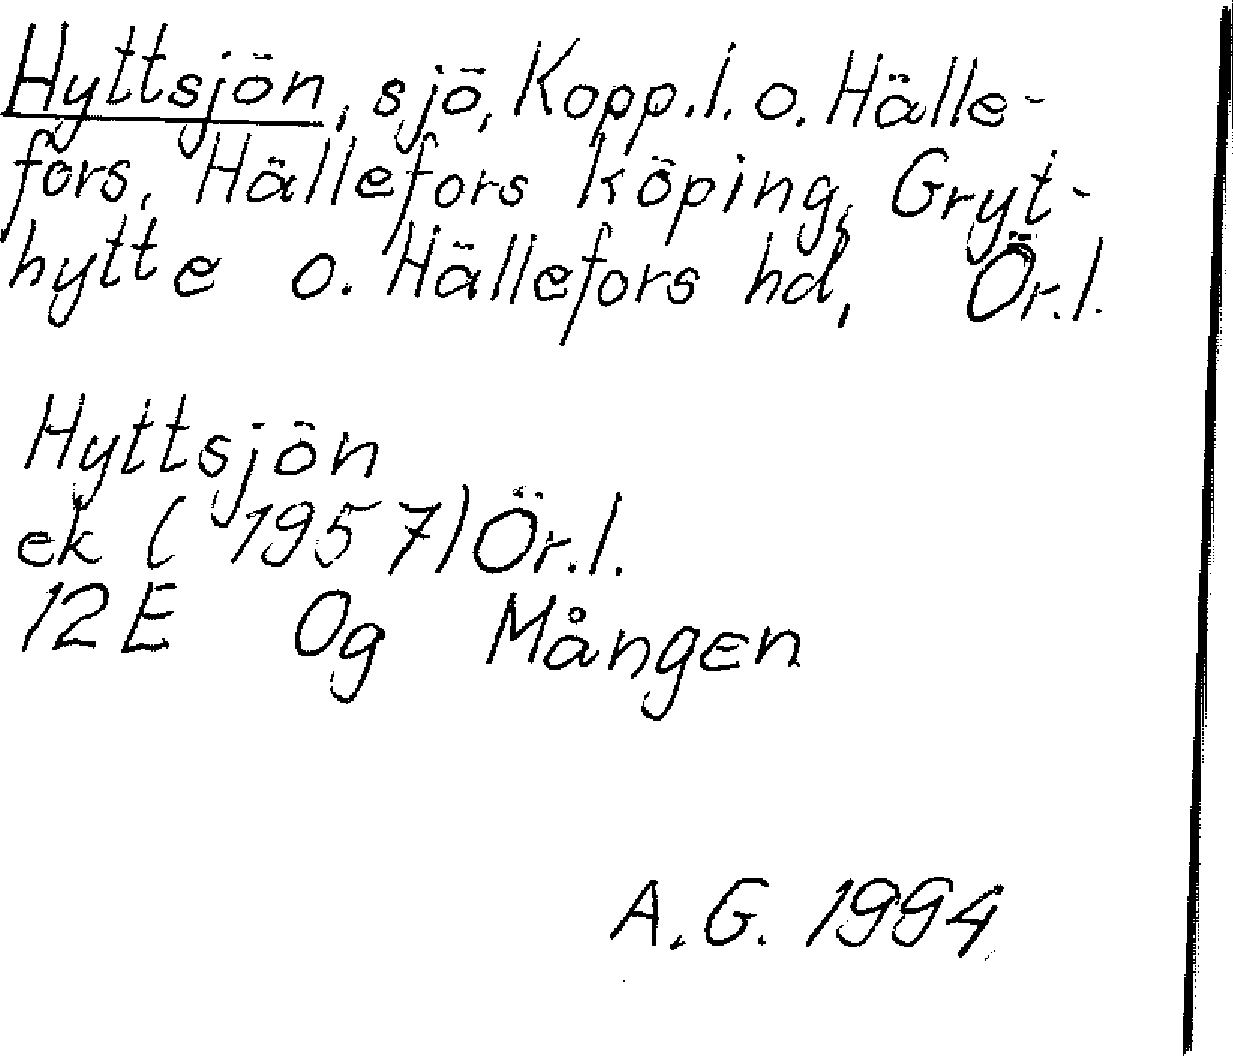 Hyttsjön, sjö, Kopp.l. o. Hälle-
fors, Hällefors köping, Gryt-
hytte o. Hällefors hd, Ör.l.
Hyttsjön
ek (1957) Ör.l.
12E 0g Mången
A.G. 1994